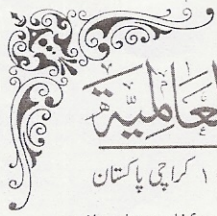 العالمية
۱ کراچی پاکستان